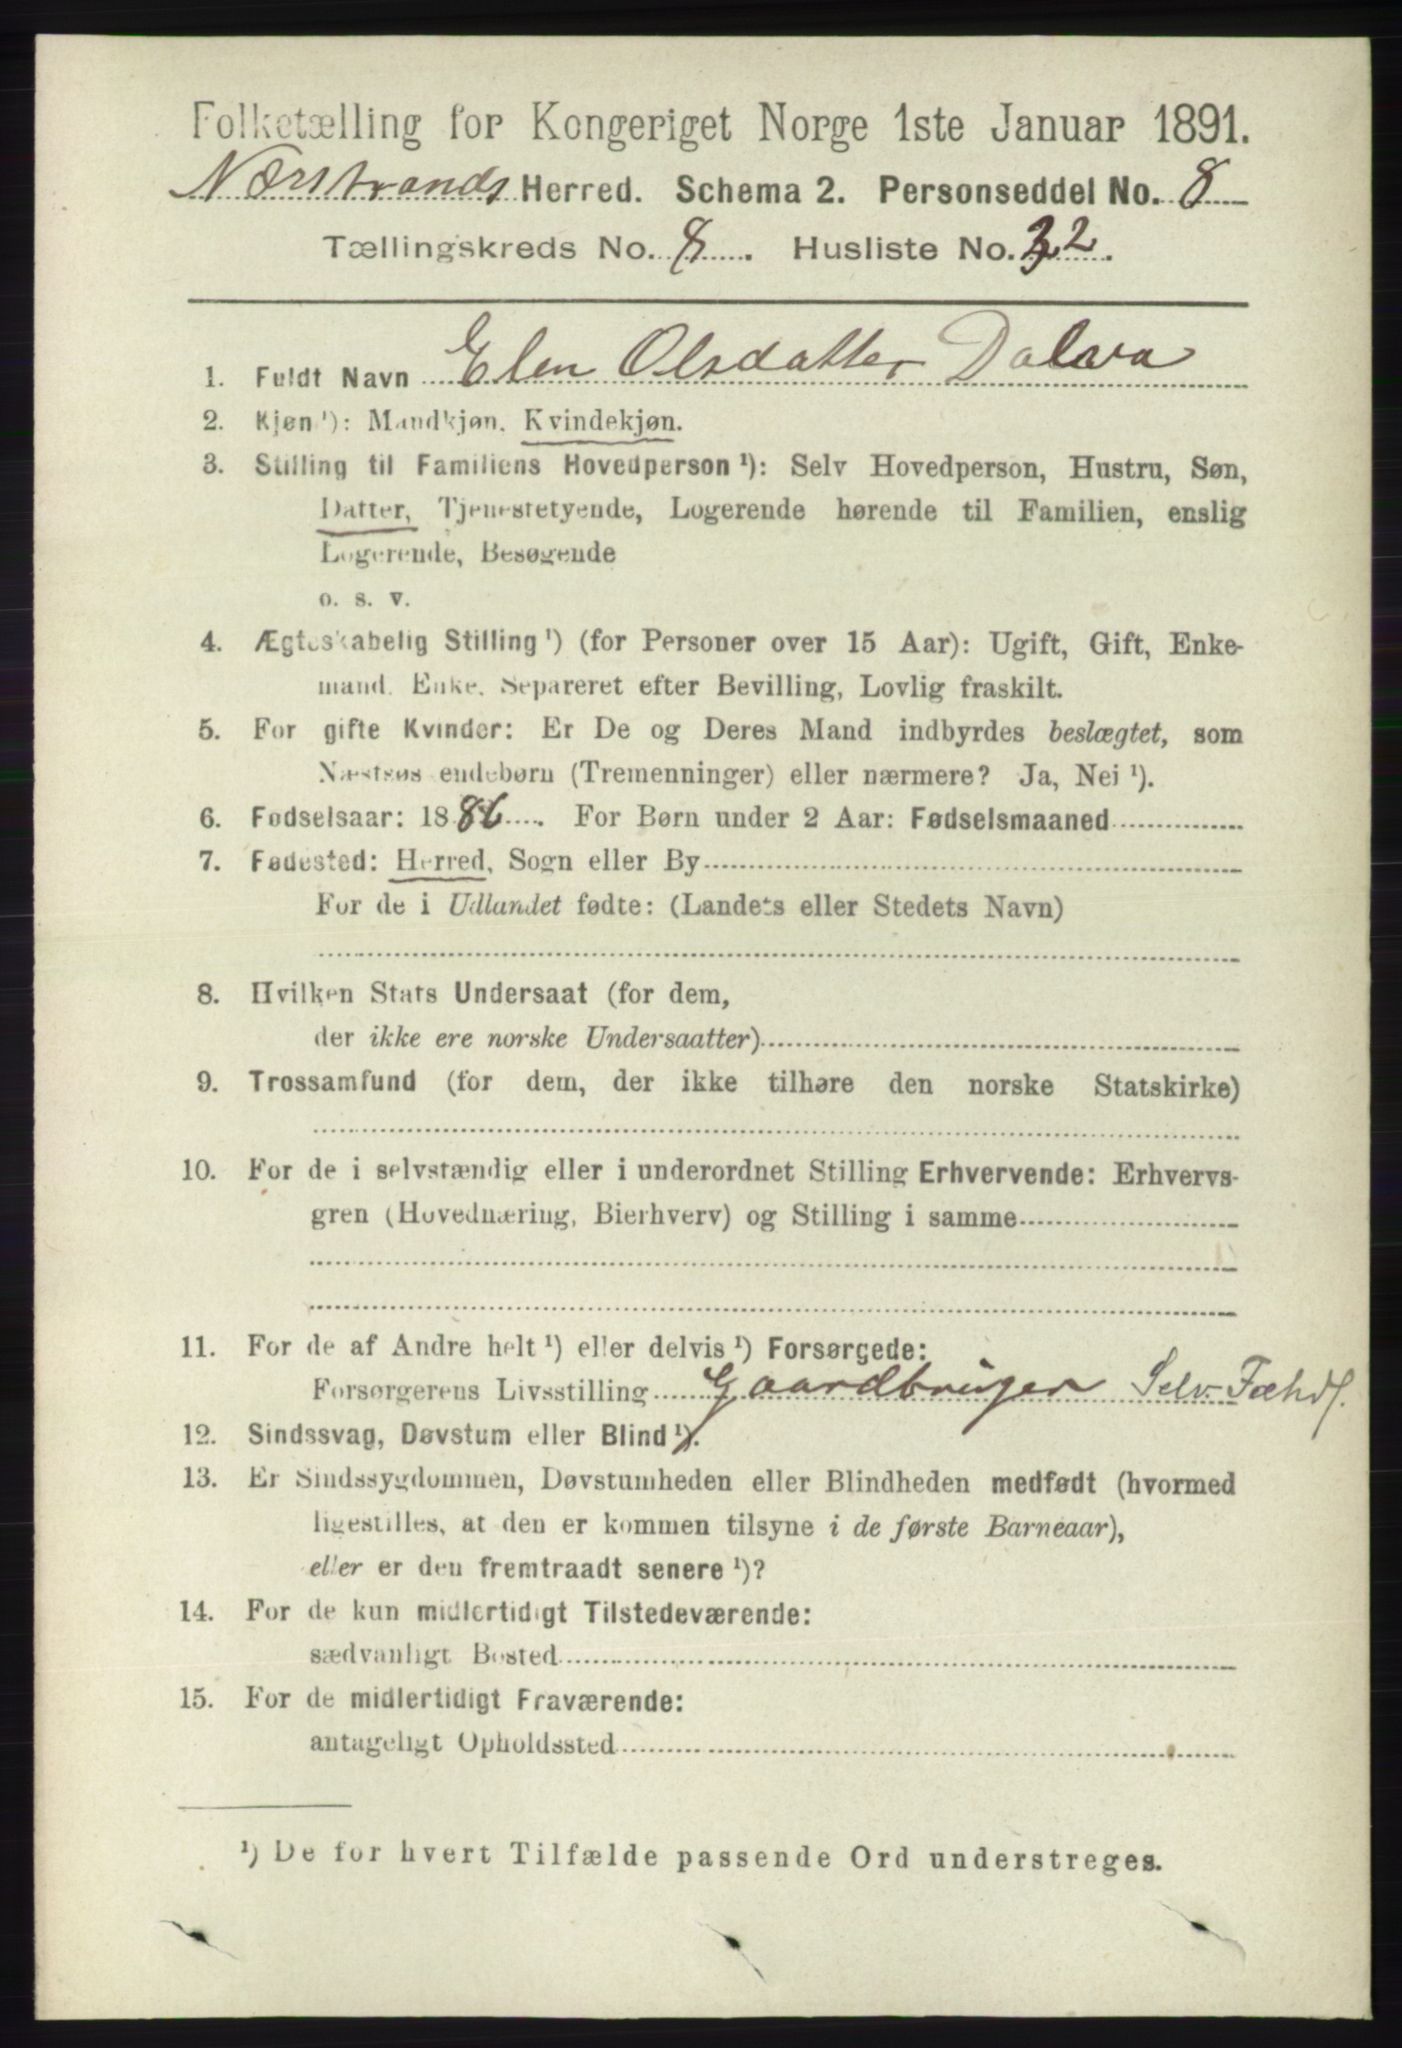 Folketælling for Kongeriget Norge 1ste Januar 1891.
Nærstrands Herred. Schema 2. Personseddel No. 8
Tællingskreds No. 8. Husliste No. 32.
1. Fuldt Navn Elen Olsdatter Dalva
2. Kjøn ¹): Mandkjøn, Kvindekjøn.
3. Stilling til Familiens Hovedperson ¹): Selv Hovedperson, Hustru, Søn,
Datter, Tjenestetyende, Logerende hørende til Familien, enslig
Logerende, Besøgende
o. s. v.
4. Ægteskabelig Stilling ¹) (for Personer over 15 Aar): Ugift, Gift, Enke-
mand, Enke, Separeret efter Bevilling, Lovlig fraskilt.
5. For gifte Kvinder: Er De og Deres Mand indbyrdes beslægtet, som
Næstsøskendebørn (Tremenninger) eller nærmere? Ja, Nei ¹).
6. Fødselsaar: 1886. For Børn under 2 Aar: Fødselsmaaned
7. Fødested: Herred, Sogn eller By
For de i Udlandet fødte: (Landets eller Stedets Navn)
8. Hvilken Stats Undersaat (for dem,
der ikke ere norske Undersaatter)
9. Trossamfund (for dem, der ikke tilhøre den norske Statskirke)
10. For de i selvstændig eller i underordnet Stilling Erhvervende: Erhvervs-
gren (Hovednæring, Bierhverv) og Stilling i samme
11. For de af Andre helt ¹) eller delvis ¹) Forsørgede:
Forsørgerens Livsstilling Gaardbruger Selv.
12. Sindssvag, Døvstum eller Blind ¹).
13. Er Sindssygdommen, Døvstumheden eller Blindheden medfødt (hvormed
ligestilles, at den er kommen tilsyne i de første Barneaar),
eller er den fremtraadt senere ¹)?
14. For de kun midlertidigt Tilstedeværende:
sædvanligt Bosted
15. For de midlertidigt Fraværende:
antageligt Opholdssted
¹) De for hvert Tilfælde passende Ord understreges.